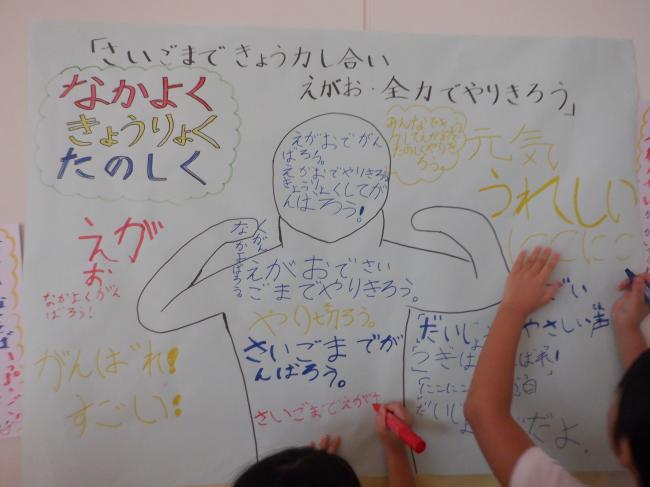 「さいごまできょう力し合い
えがお・全力でやりきろう」
なかよく
きょうりょく
たのしく
えがおでがん
ばろう。
えがおでやりきろう
きょうりょくしてが
んばろう!
元気
うれしい
にこにこ
えが
お
なかよくがん
ばろう!
なかよく
がん
ばろう。
えがおでさい
ごまでやりきろう。
やり切ろう。
さいごまでが
んばろう。
さいごまでえが
がんばれ!
すごい!
ごい
「だいじょ
やさしい声
「つぎは
ばれ!
「にこにこ
だいじょ
だよ。